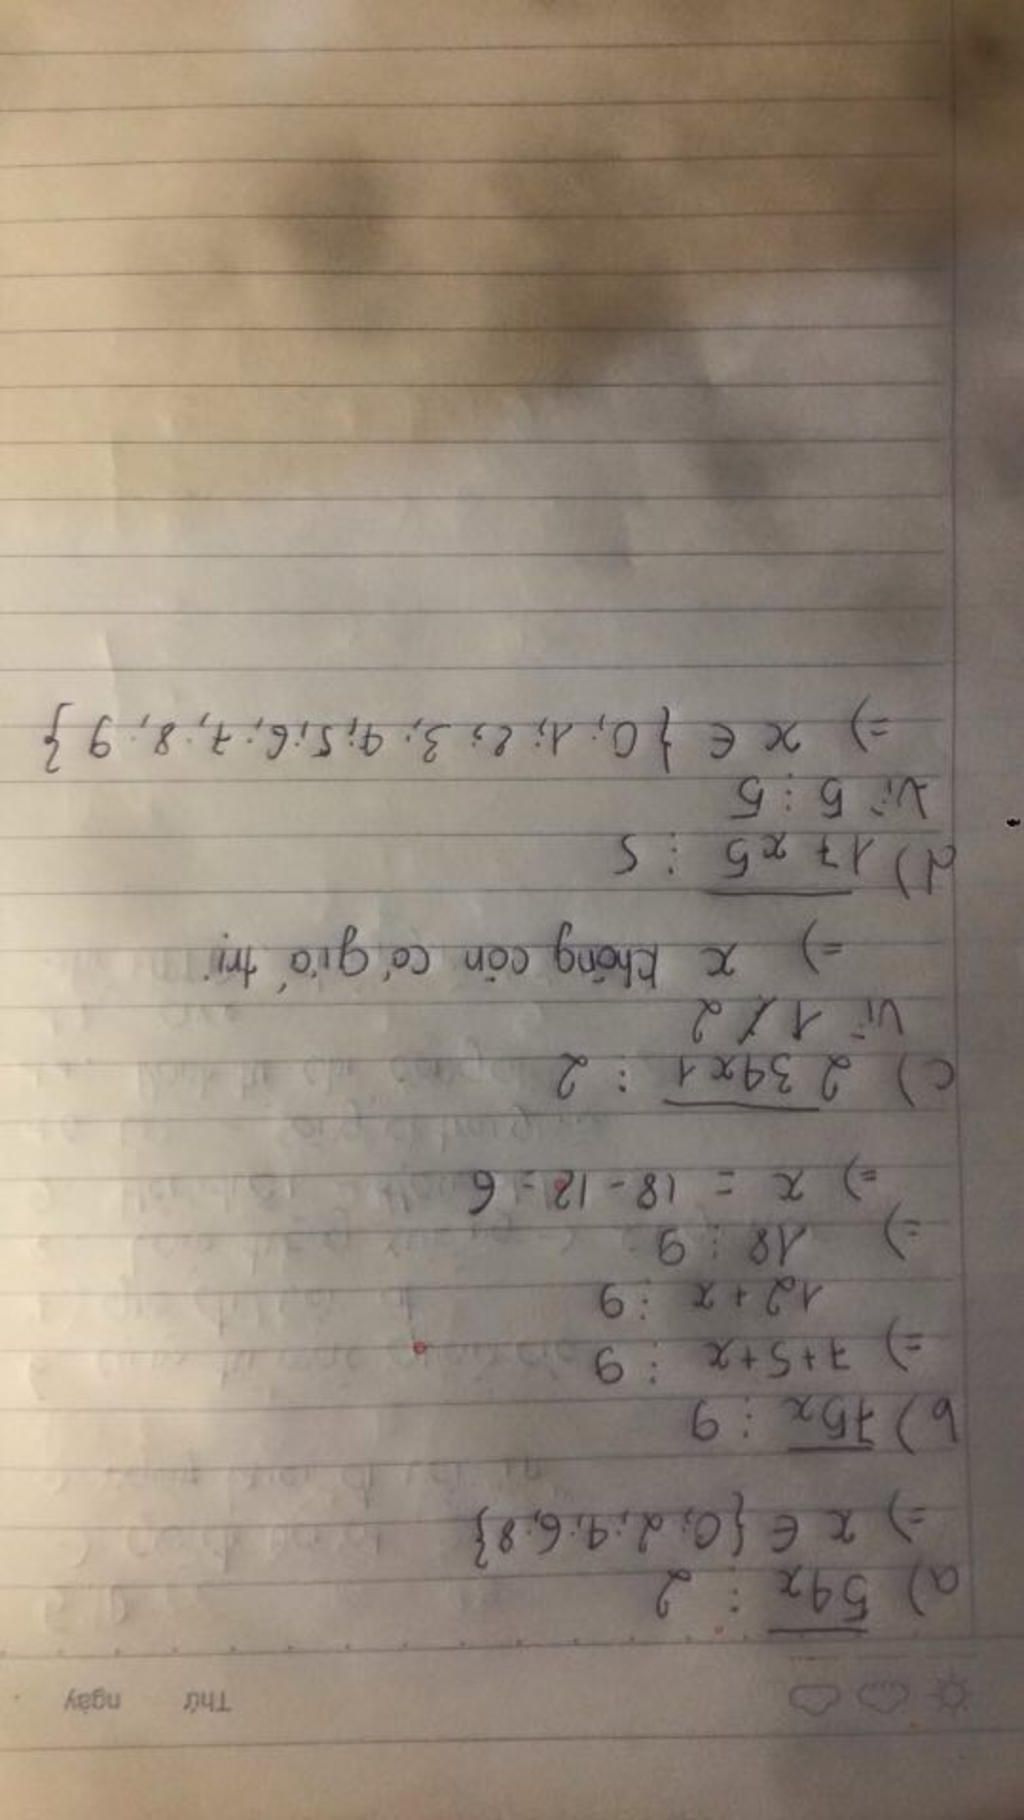 Thứ ngày
a) 54x ⋮ 2
=) x ∈ {0; 2; 4; 6; 8}
b) 75x ⋮ 9
=) 7+5+x ⋮ 9
12+x ⋮ 9
=) 18 ⋮ 9
=) x = 18 - 12 = 6
c) 234x1 ⋮ 2
Vì 1 ⋮̸ 2
=) x không còn có giá trị
d) 17x5 ⋮ 5
Vì 5 ⋮ 5
=) x ∈ {0; 1; 2; 3; 4; 5; 6; 7; 8; 9}